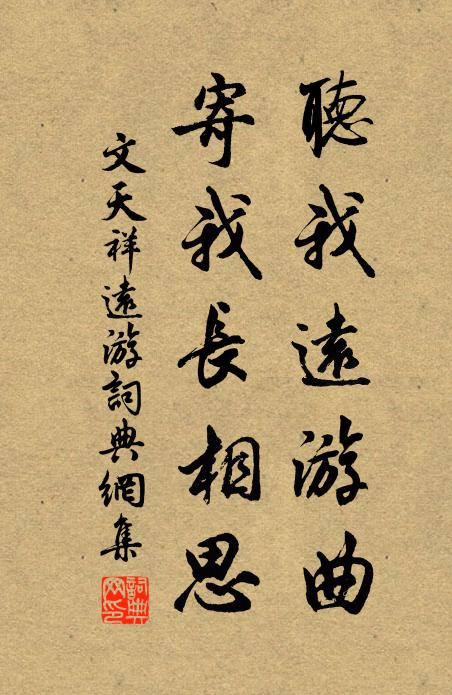 聽我遠游曲
寄我長相思
文天祥遠游詞典網集
詞典
网印